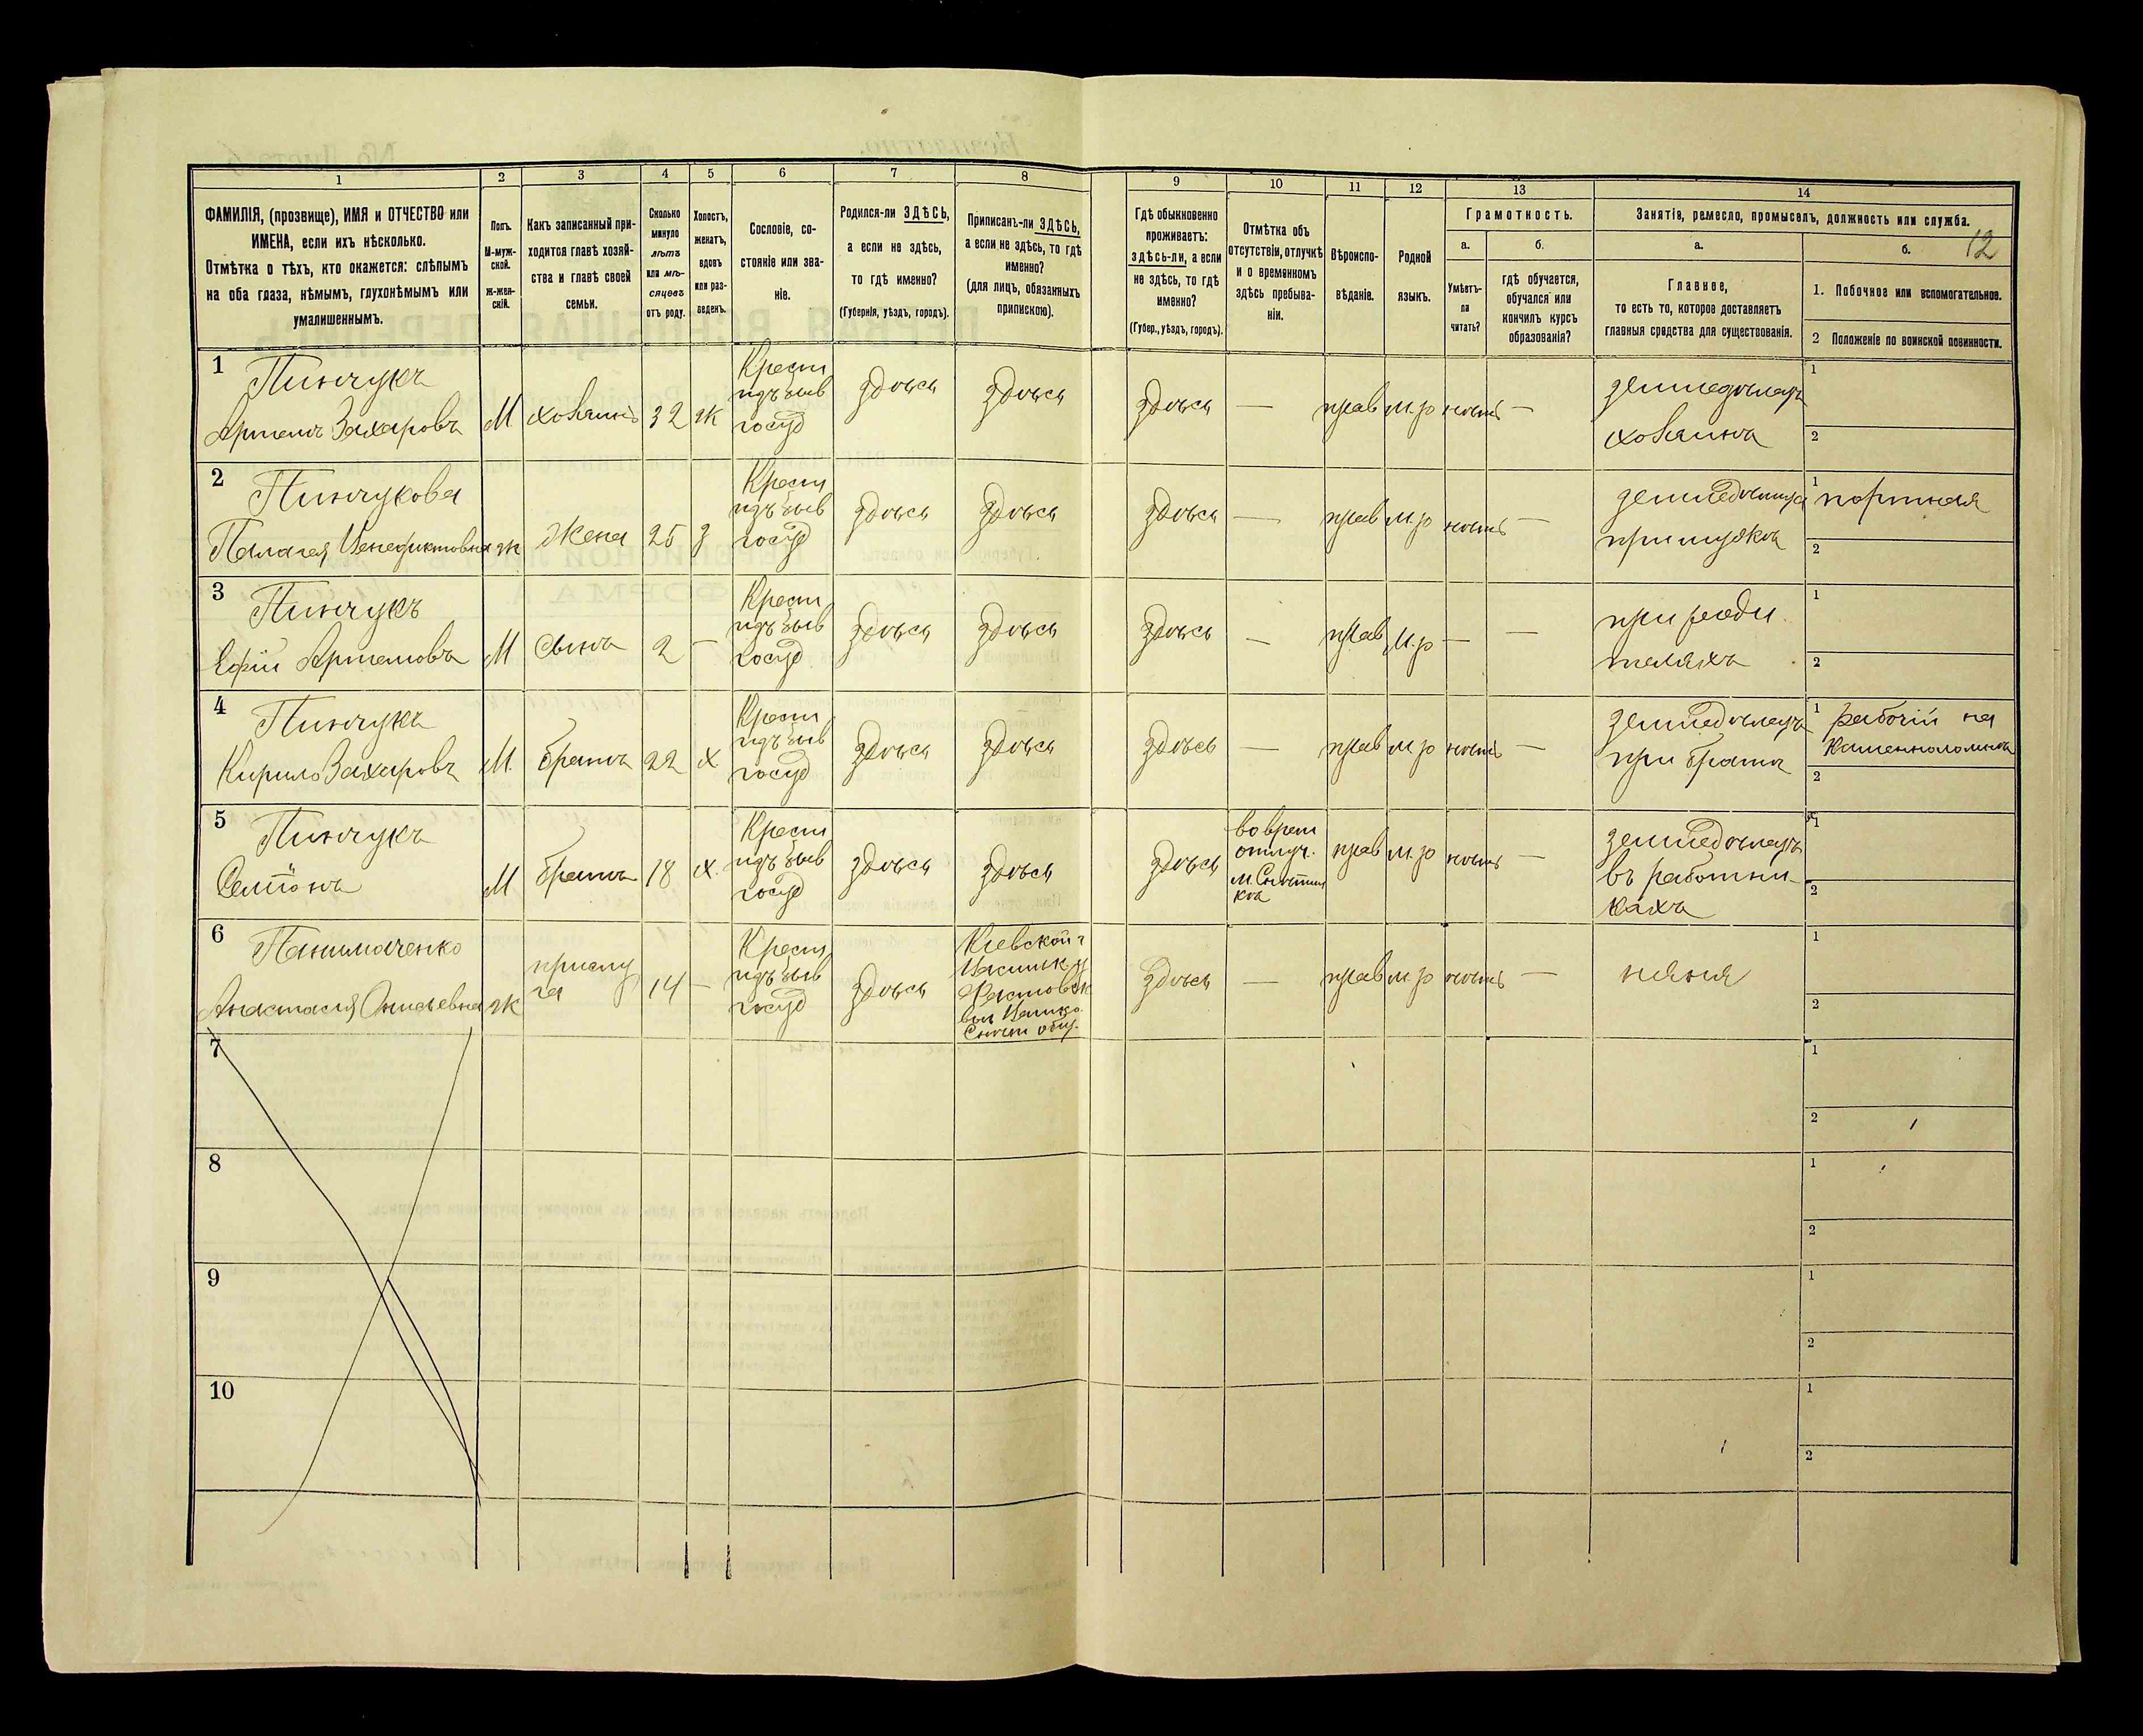 1
2
3
4
5
6
7
8
9
10
11
12
13
14
ФАМИЛІЯ, (прозвище), ИМЯ и ОТЧЕСТВО или
ИМЕНА, если ихъ нѣсколько.
Отмѣтка о тѣхъ, кто окажется: слѣпымъ
на оба глаза, нѣмымъ, глухонѣмымъ или
умалишеннымъ.
Полъ.
М-муж-
ской.
Ж-жен-
скій.
Какъ записанный при-
ходится главѣ хозяй-
ства и главѣ своей
семьи.
Сколько
минуло
лѣтъ
или мѣ-
сяцевъ
отъ роду.
Холостъ,
женатъ,
вдовъ
или раз-
веденъ.
Сословіе, со-
стояніе или зва-
ніе.
Родился-ли ЗДѢСЬ,
а если не здѣсь,
то гдѣ именно?
(Губернія, уѣздъ, городъ).
Приписанъ-ли ЗДѢСЬ,
а если не здѣсь, то гдѣ
именно?
(для лицъ, обязанныхъ
припискою).
Гдѣ обыкновенно
проживаетъ:
здѣсь-ли, а если
не здѣсь, то гдѣ
именно?
(Губер., уѣздъ, городъ).
Отмѣтка объ
отсутствіи, отлучкѣ
и о временномъ
здѣсь пребыва-
ніи.
Вѣроиспо-
вѣданіе.
Родной
языкъ.
Грамотность.
а.
б.
Умѣетъ-
ли
читать?
гдѣ обучается,
обучался или
кончилъ курсъ
образованія?
Занятія, ремесло, промыселъ, должность или служба.
а.
б.
12
Главное,
то есть то, которое доставляетъ
главныя средства для существованія.
1. Побочное или вспомогательное.
2 Положеніе по воинской повинности.
1
Пинчукъ
Артемъ Захаровъ
М
хозяинъ
32
ж
Крест
изъ быв
госуд
здѣсь
здѣсь
здѣсь
—
прав
м.р
нѣтъ
—
земледѣлецъ
хозяинъ
1
2
2
Пинчукова
Палагея Венефиктовна
ж
жена
25
з
Крест
изъ быв
госуд
здѣсь
здѣсь
здѣсь
—
прав
м.р
нѣтъ
—
земледѣлица
при мужѣ
1 портная
2
3
Пинчукъ
Артемовъ
М
сынъ
2
—
Крест
изъ быв
госуд
здѣсь
здѣсь
здѣсь
—
прав
м.р
—
—
при роди
теляхъ
1
2
4
Пинчукъ
Кирило Захаровъ
М.
братъ
22
х
Крест
изъ быв
госуд
здѣсь
здѣсь
здѣсь
—
прав
м.р
нѣтъ
—
земледѣлецъ
при братѣ
1 рабочій на
каменноломнѣ
2
5
Пинчукъ
Семіонъ
М
братъ
18
х.
Крест
изъ быв
госуд
здѣсь
здѣсь
здѣсь
во врем
отлуч.
м. Снѣтин
кѣ
прав
м.р
нѣтъ
—
земледѣлецъ
въ работни-
кахъ
1
2
6
Панимаченко
Анастасія
ж
прислу
га
14
—
Крест
изъ быв
госуд
здѣсь
Кіевской г
Васильк у
Фастовск
вол
общ.
здѣсь
—
прав
м.р
нѣтъ
—
няня
1
2
7
1
2
8
1
2
9
1
2
10
1
2